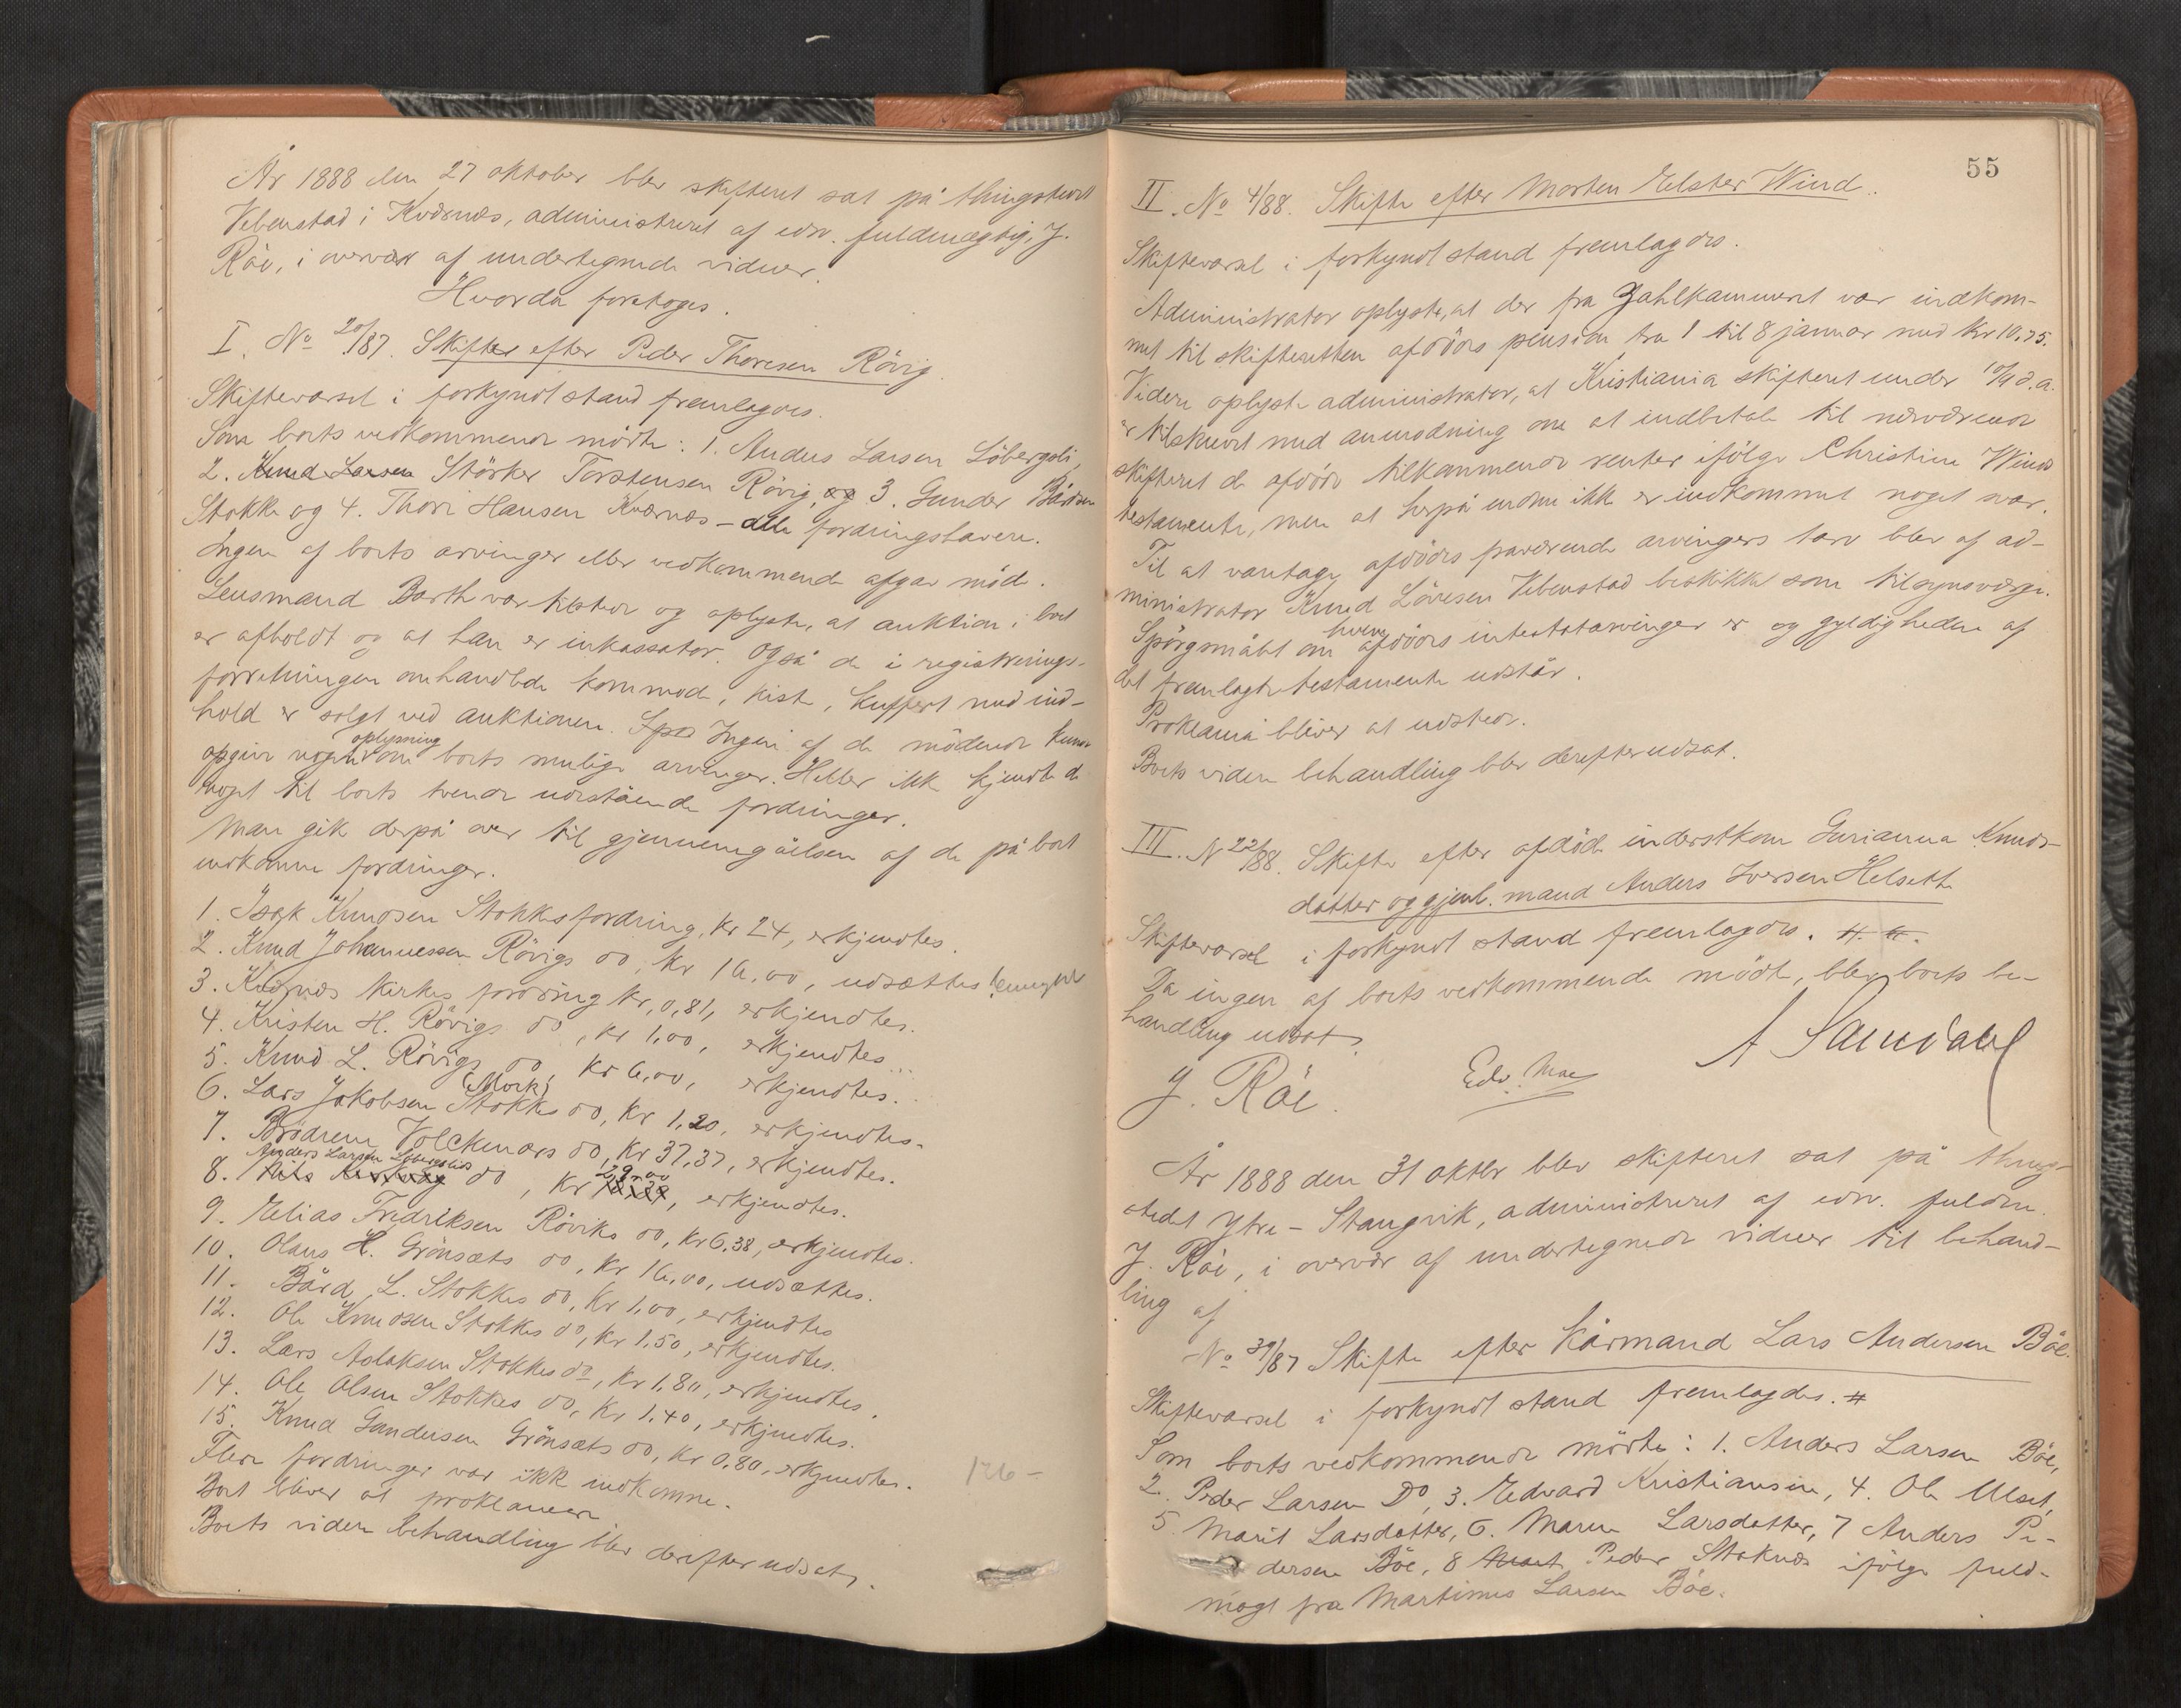 År 1888 den 27 oktober blev skifteret sat på thingstedet
Vebenstad i Kværnæs, administreret af edsv. fuldmægtig, J.
Röe, i overvær af undertegnede vidner.
Hvorda foretoges.
I. No 20/87. Skifte efter Peder Thoresen Rövig.
Skiftevarsel i forkyndt stand fremlagdes.
Som boets vedkommende mödte: 1. Anders Larsen Löbergsli,
2. Knud Larsen Störker Torstensen Rövig, og 3. Gunder Bårdsen
Stokke og 4. Thore Hansen Kværnæs – alle fordringshavere.
Ingen af boets arvinger eller vedkommende afgav möde.
Lensmand Barth var tilstede og oplyste, at auktion i boet
er afholdt og at han er inkassator. Også de i registrerings-
forretningen omhandlede kommode, kiste, kuffert med ind-
hold er solgt ved auktionen. Ingen af de mödende kunde
opgive nogen oplysning om boets mulige arvinger. Heller ikke kjendte de
noget til boets tvende udestående fordringer.
Man gik derpå over til gjennemgåelsen af de på boet
indkomne fordringer.
1. Isak Knudsen Stokkes fordring, kr 24, erkjendtes.
2. Knud Johannessen Rövigs do, kr 16,00, udsættes
3. Kvernæs kirkes fordring kr, 0,81, erkjendtes.
4. Kristen H. Rövigs do, kr 1,00, erkjendtes.
5. Knud L. Rövigs do, kr 6,00, erkjendtes.
6. Lars Jakobsen (Mork) Stokkes do, kr 1,20, erkjendtes.
7. Brödrene Volckmars do, kr 37,37, erkjendtes.
8. Anders Larsen Löbergslis do, kr 29,00, erkjendtes.
9. Elias Fredriksen Röviks do, kr 6,38, erkjendtes.
10. Olaus H. Grönsæts do, kr 16,00, udsættes.
11. Bård L. Stokkes do, kr 1,00, erkjendtes
12. Ole Knudsen Stokkes do, kr 1,50, erkjendtes.
13. Lars Aslaksen Stokkes do, kr 1,80, erkjendtes.
14. Ole Olsen Stokkes do, kr 1,40, erkjendtes.
15. Knud Gundersen Grönsæts do, kr 0,80, erkjendtes.
Flere fordringer var ikke indkomne.
126 –
Boet bliver at proklamere
Boets videre behandling blev derefter udsat.
55
II. No 4/88. Skifte efter Morten Elster Wind.
Skiftevarsel i forkyndt stand fremlagdes.
Administrator oplyste, at der fra Zahlkammeret var indkom-
met til skifteretten afdödes pension fra 1 til 8 januar med kr 10,75.
Videre oplyste administrator, at Kristiania skifteret under 10/4 d.a.
er tilskrevet med anmodning om at indbetale til nærværende
skifteret de afdöde tilkommende renter ifölge Christine Winds
testamente, men at herpå endnu ikke er indkommet noget svar.
Til at varetage afdödes fraværende arvingers tarv blev af ad-
ministrator Knud Lövesen Vebenstad beskikket som tilsynsværge.
Spörgsmålet om hvem afdödes intestatarvinger er og gyldigheden af
det fremlagte testamente udstår.
Proklama bliver at udstede.
Boets videre behandling blev derefter udsat.
III. N 22/88. Skifte efter afdöde inderstkone Gurianna Knuds-
datter og gjenl. mand Anders Iversen Helsette
Skiftevarsel i forkyndt stand fremlagdes.
Da ingen af boets vedkommende mödte, blev boets be-
handling udsat.
J. Röe. Edv. Moe A Sandahl
År 1888 den 31 oktbr blev skifteret sat på thing-
stedet Ytre-Stangvik, administreret af edsv. fuldm.
J. Röe, i overvær af undertegnede vidner til behand-
ling af
No 39/87 Skifte efter kårmand Lars Andersen Böe.
Skiftevarsel i forkyndt stand fremlagdes. #
Som boets vedkommende mödte: 1. Anders Larsen Böe,
2. Peder Larsen Do, 3. Edvard Kristiansen, 4. Ole Ulset,
5. Marit Larsdatter, 6. Maren Larsdatter, 7 Anders Pe-
dersen Böe, 8 Peder Stoknæs ifölge fuld-
magt fra Martinus Larsen Böe.